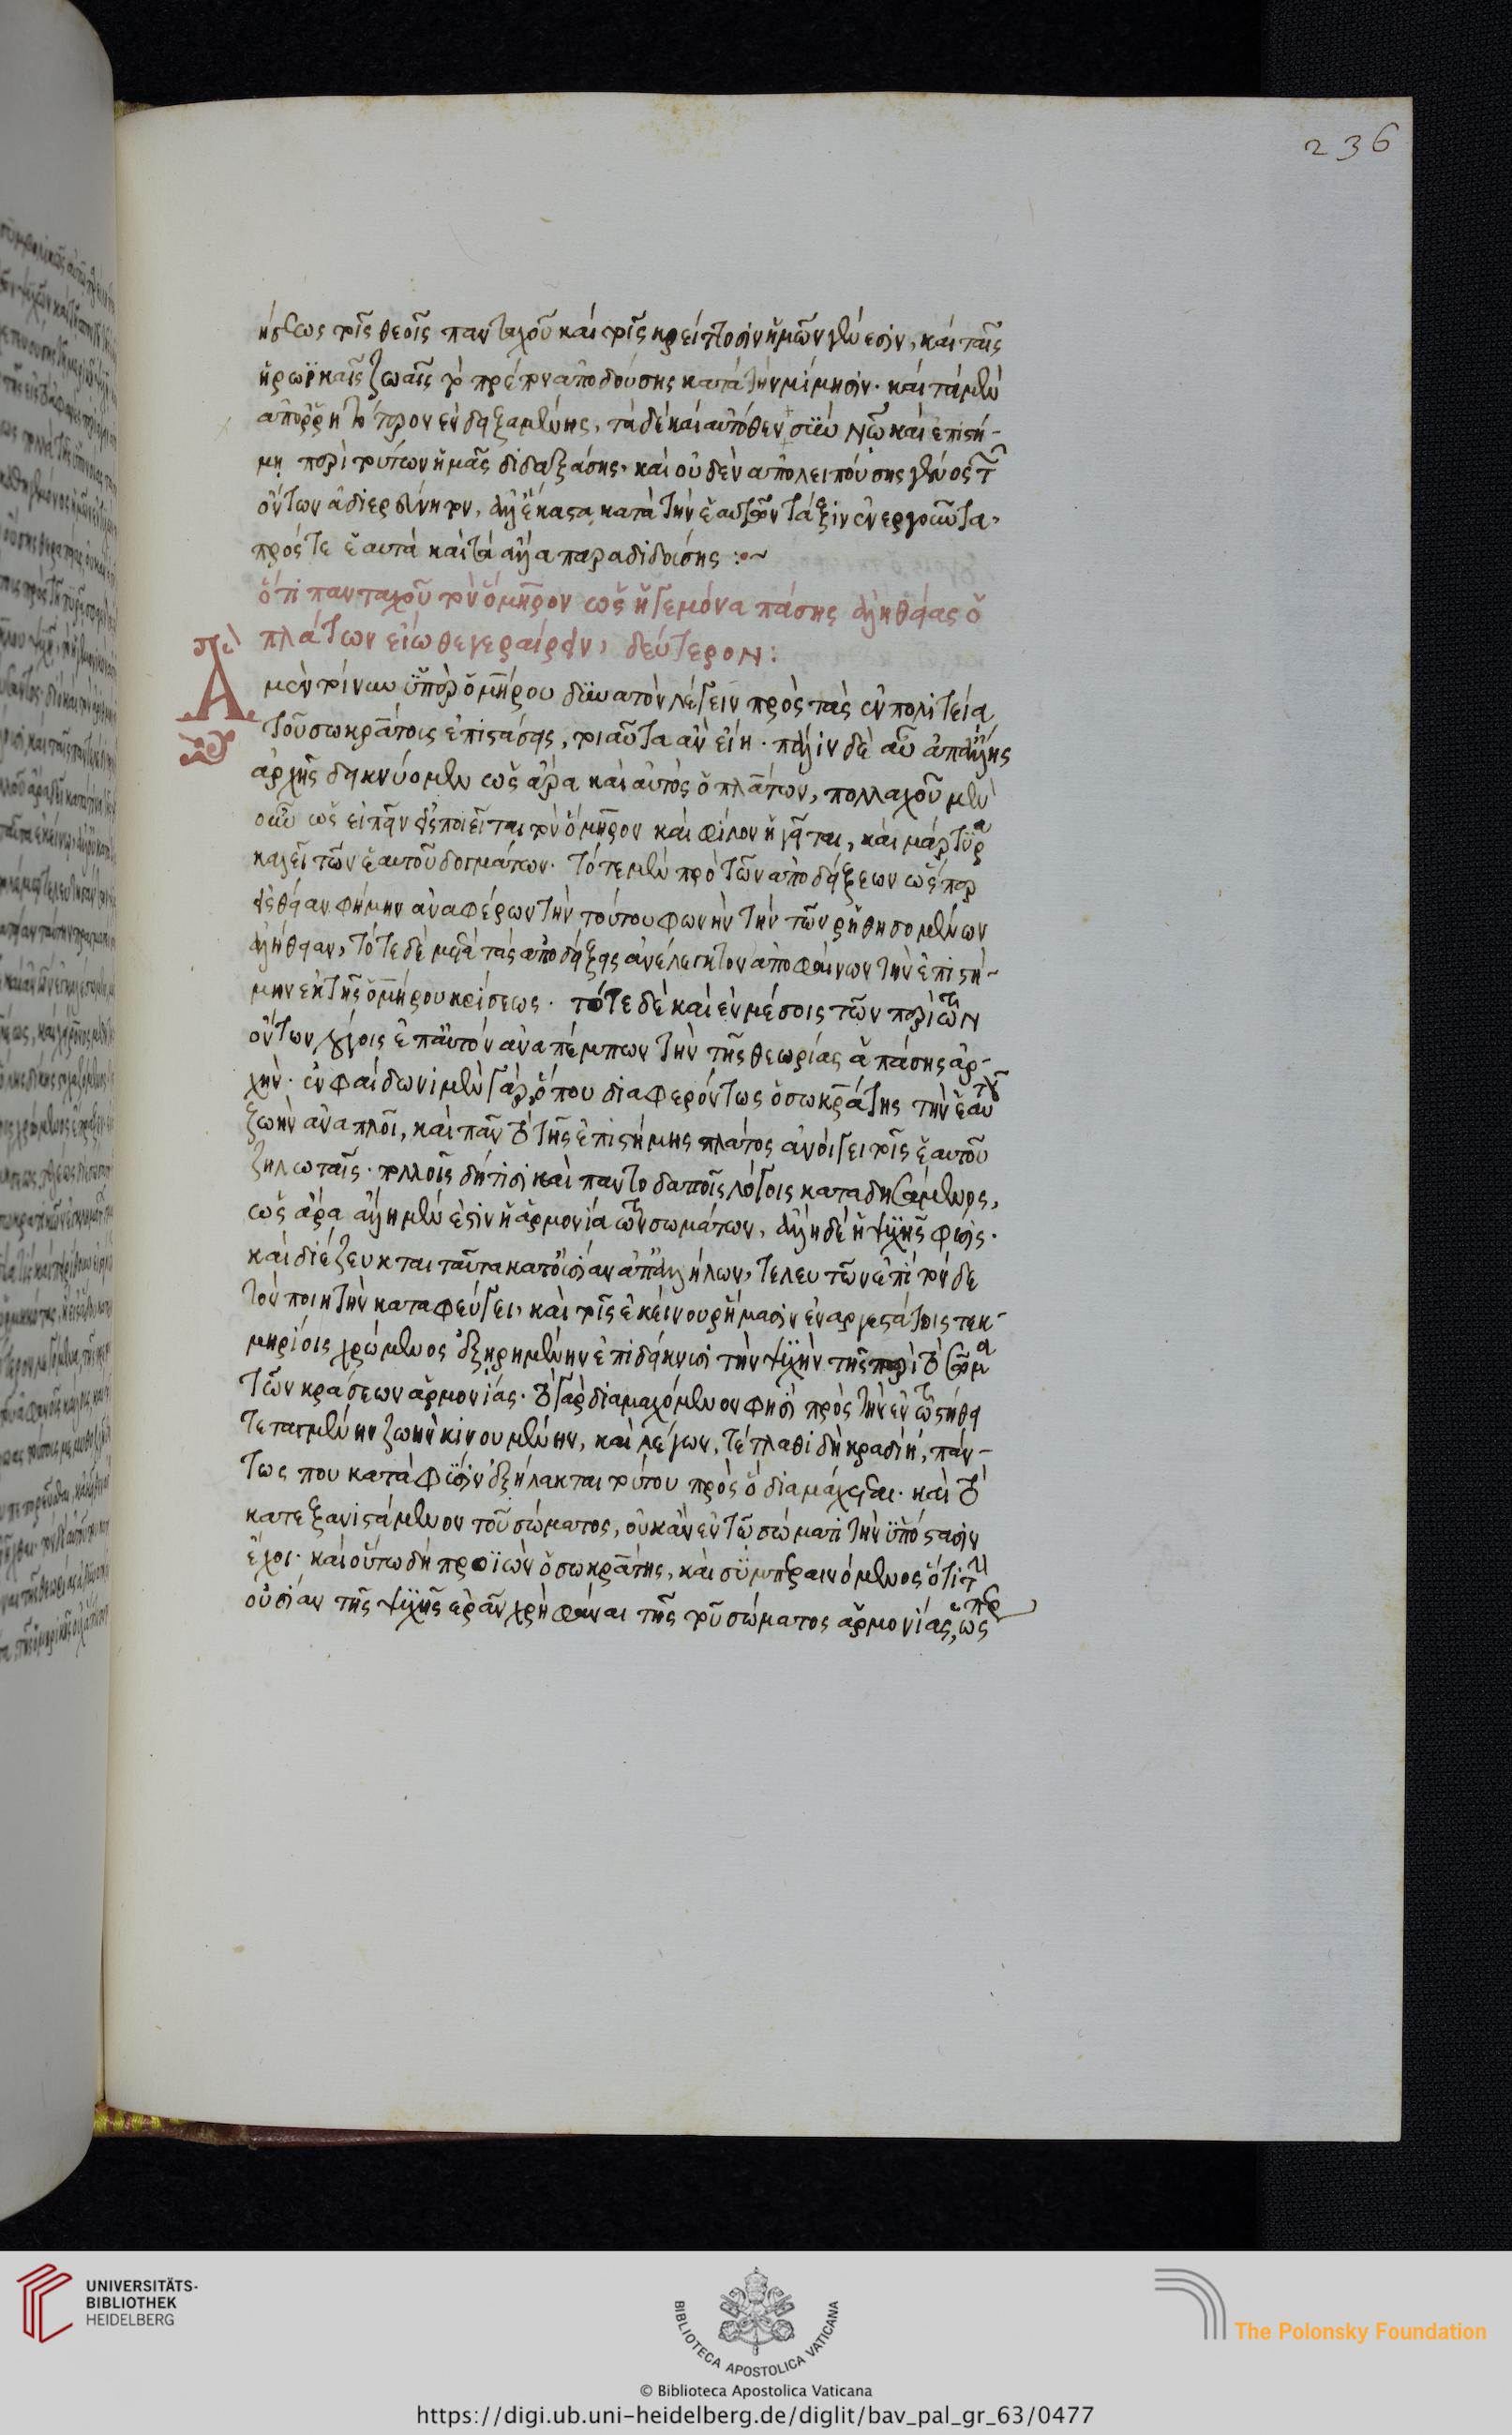 ήσεως τοῖς θεοῖς πανταχοῦ καὶ τοῖς κρείττοσιν ἡμῶν γένεσιν, καὶ ταῖς
ἡρωϊκαῖς ζωαῖς τὸ πρέπον ἀποδούσης κατὰ τὴν μίμησιν· καὶ τὰ μὲν
ἀπορρητότερον ἐνδειξαμένης, τὰ δὲ καὶ αὐτόθεν σὺν νῷ καὶ ἐπιστή-
μῃ περὶ τούτων ἡμᾶς διδαξάσης· καὶ οὐδὲν ἀπολειπούσης γένος τῶν
ὄντων ἀδιερεύνητον, ἀλλ' ἕκαστα κατὰ τὴν ἑαυτῶν τάξιν ἐνεργοῦντα,
πρός τε ἑαυτὰ καὶ τὰ ἄλλα παραδιδούσης :~
ὅτι πανταχοῦ τὸν ὅμηρον ὡς ἡγεμόνα πάσης ἀληθείας ὁ
πλάτων εἴωθε γεραίρειν, δεύτερον:
Ἃ μὲν τοίνυν ὑπὲρ ὁμήρου δυνατὸν λέγειν πρὸς τὰς ἐν πολιτείᾳ
τοῦ σωκράτους ἐπιστάσεις, τοιαῦτα ἂν εἴη. πάλιν δὲ αὖ ἀπ' ἄλλης
ἀρχῆς δεικνύομεν ὡς ἄρα καὶ αὐτὸς ὁ πλάτων, πολλαχοῦ μὲν
οὖν ὡς εἰπεῖν εἰσποιεῖται τὸν ὅμηρον καὶ φίλον ἡγεῖται, καὶ μάρτυρα
καλεῖ τῶν ἑαυτοῦ δογμάτων. τότε μὲν πρὸ τῶν ἀποδείξεων ὥσπερ
εἰς θείαν φήμην ἀναφέρων τὴν τούτου φωνὴν τὴν τῶν ῥηθησομένων
ἀλήθειαν, τότε δὲ μετὰ τὰς ἀποδείξεις ἀνέλεγκτον ἀποφαίνων τὴν ἐπιστή-
μην ἐκ τῆς ὁμήρου κρίσεως. τότε δὲ καὶ ἐν μέσοις τῶν περὶ τῶν
ὄντων λόγοις ἐπ' αὐτὸν ἀναπέμπων τὴν τῆς θεωρίας ἁπάσης ἀρ-
χήν. ἐν φαίδωνι μὲν γὰρ, ὅπου διαφερόντως ὁ σωκράτης τὴν ἑαυτοῦ
ζωὴν ἀναπλοῖ, καὶ πᾶν τὸ τῆς ἐπιστήμης πλάτος ἀνοίγει τοῖς ἑαυτοῦ
ζηλωταῖς. πολλοῖς δή τισι καὶ παντοδαποῖς λόγοις καταδησάμενος,
ὡς ἄρα ἄλλη μέν ἐστιν ἡ ἁρμονία τῶν σωμάτων, ἄλλη δὲ ἡ ψυχῆς φύσις.
καὶ διέζευκται ταῦτα κατ' οὐσίαν ἀπ' ἀλλήλων, τελευτῶν ἐπὶ τόνδε
τὸν ποιητὴν καταφεύγει, καὶ τοῖς ἐκείνου ῥήμασιν ἐναργεστάτοις τεκ-
μηρίοις χρώμενος ἐξῃρημένην ἐπιδείκνυσι τὴν ψυχὴν τῆς περὶ τὸ σῶμα
τῶν κράσεων ἁρμονίας. τὸ γὰρ διαμαχόμενον φησὶ πρὸς τὴν ἐν τῷ στήθει
τεταγμένην ζωὴν κινουμένην, καὶ λέγων, τέτλαθι δὴ κραδίη, πάν-
τως που κατὰ φύσιν ἐξήλλακται τούτου πρὸς ὃ διαμάχεται. καὶ τὸ
κατεξανιστάμενον τοῦ σώματος, οὐκ ἂν ἐν τῷ σώματι τὴν ὑπόστασιν
ἔχοι. καὶ οὕτω δὴ προϊὼν ὁ σωκράτης, καὶ συμπεραινόμενος ὅτι τὴν
οὐσίαν τῆς ψυχῆς ἑτέραν χρὴ φάναι τῆς τοῦ σώματος ἁρμονίας, ὥσπερ
236
UNIVERSITÄTS-
BIBLIOTHEK
HEIDELBERG
BIBLIOTECA APOSTOLICA VATICANA
The Polonsky Foundation
© Biblioteca Apostolica Vaticana
https://digi.ub.uni-heidelberg.de/diglit/bav_pal_gr_63/0477